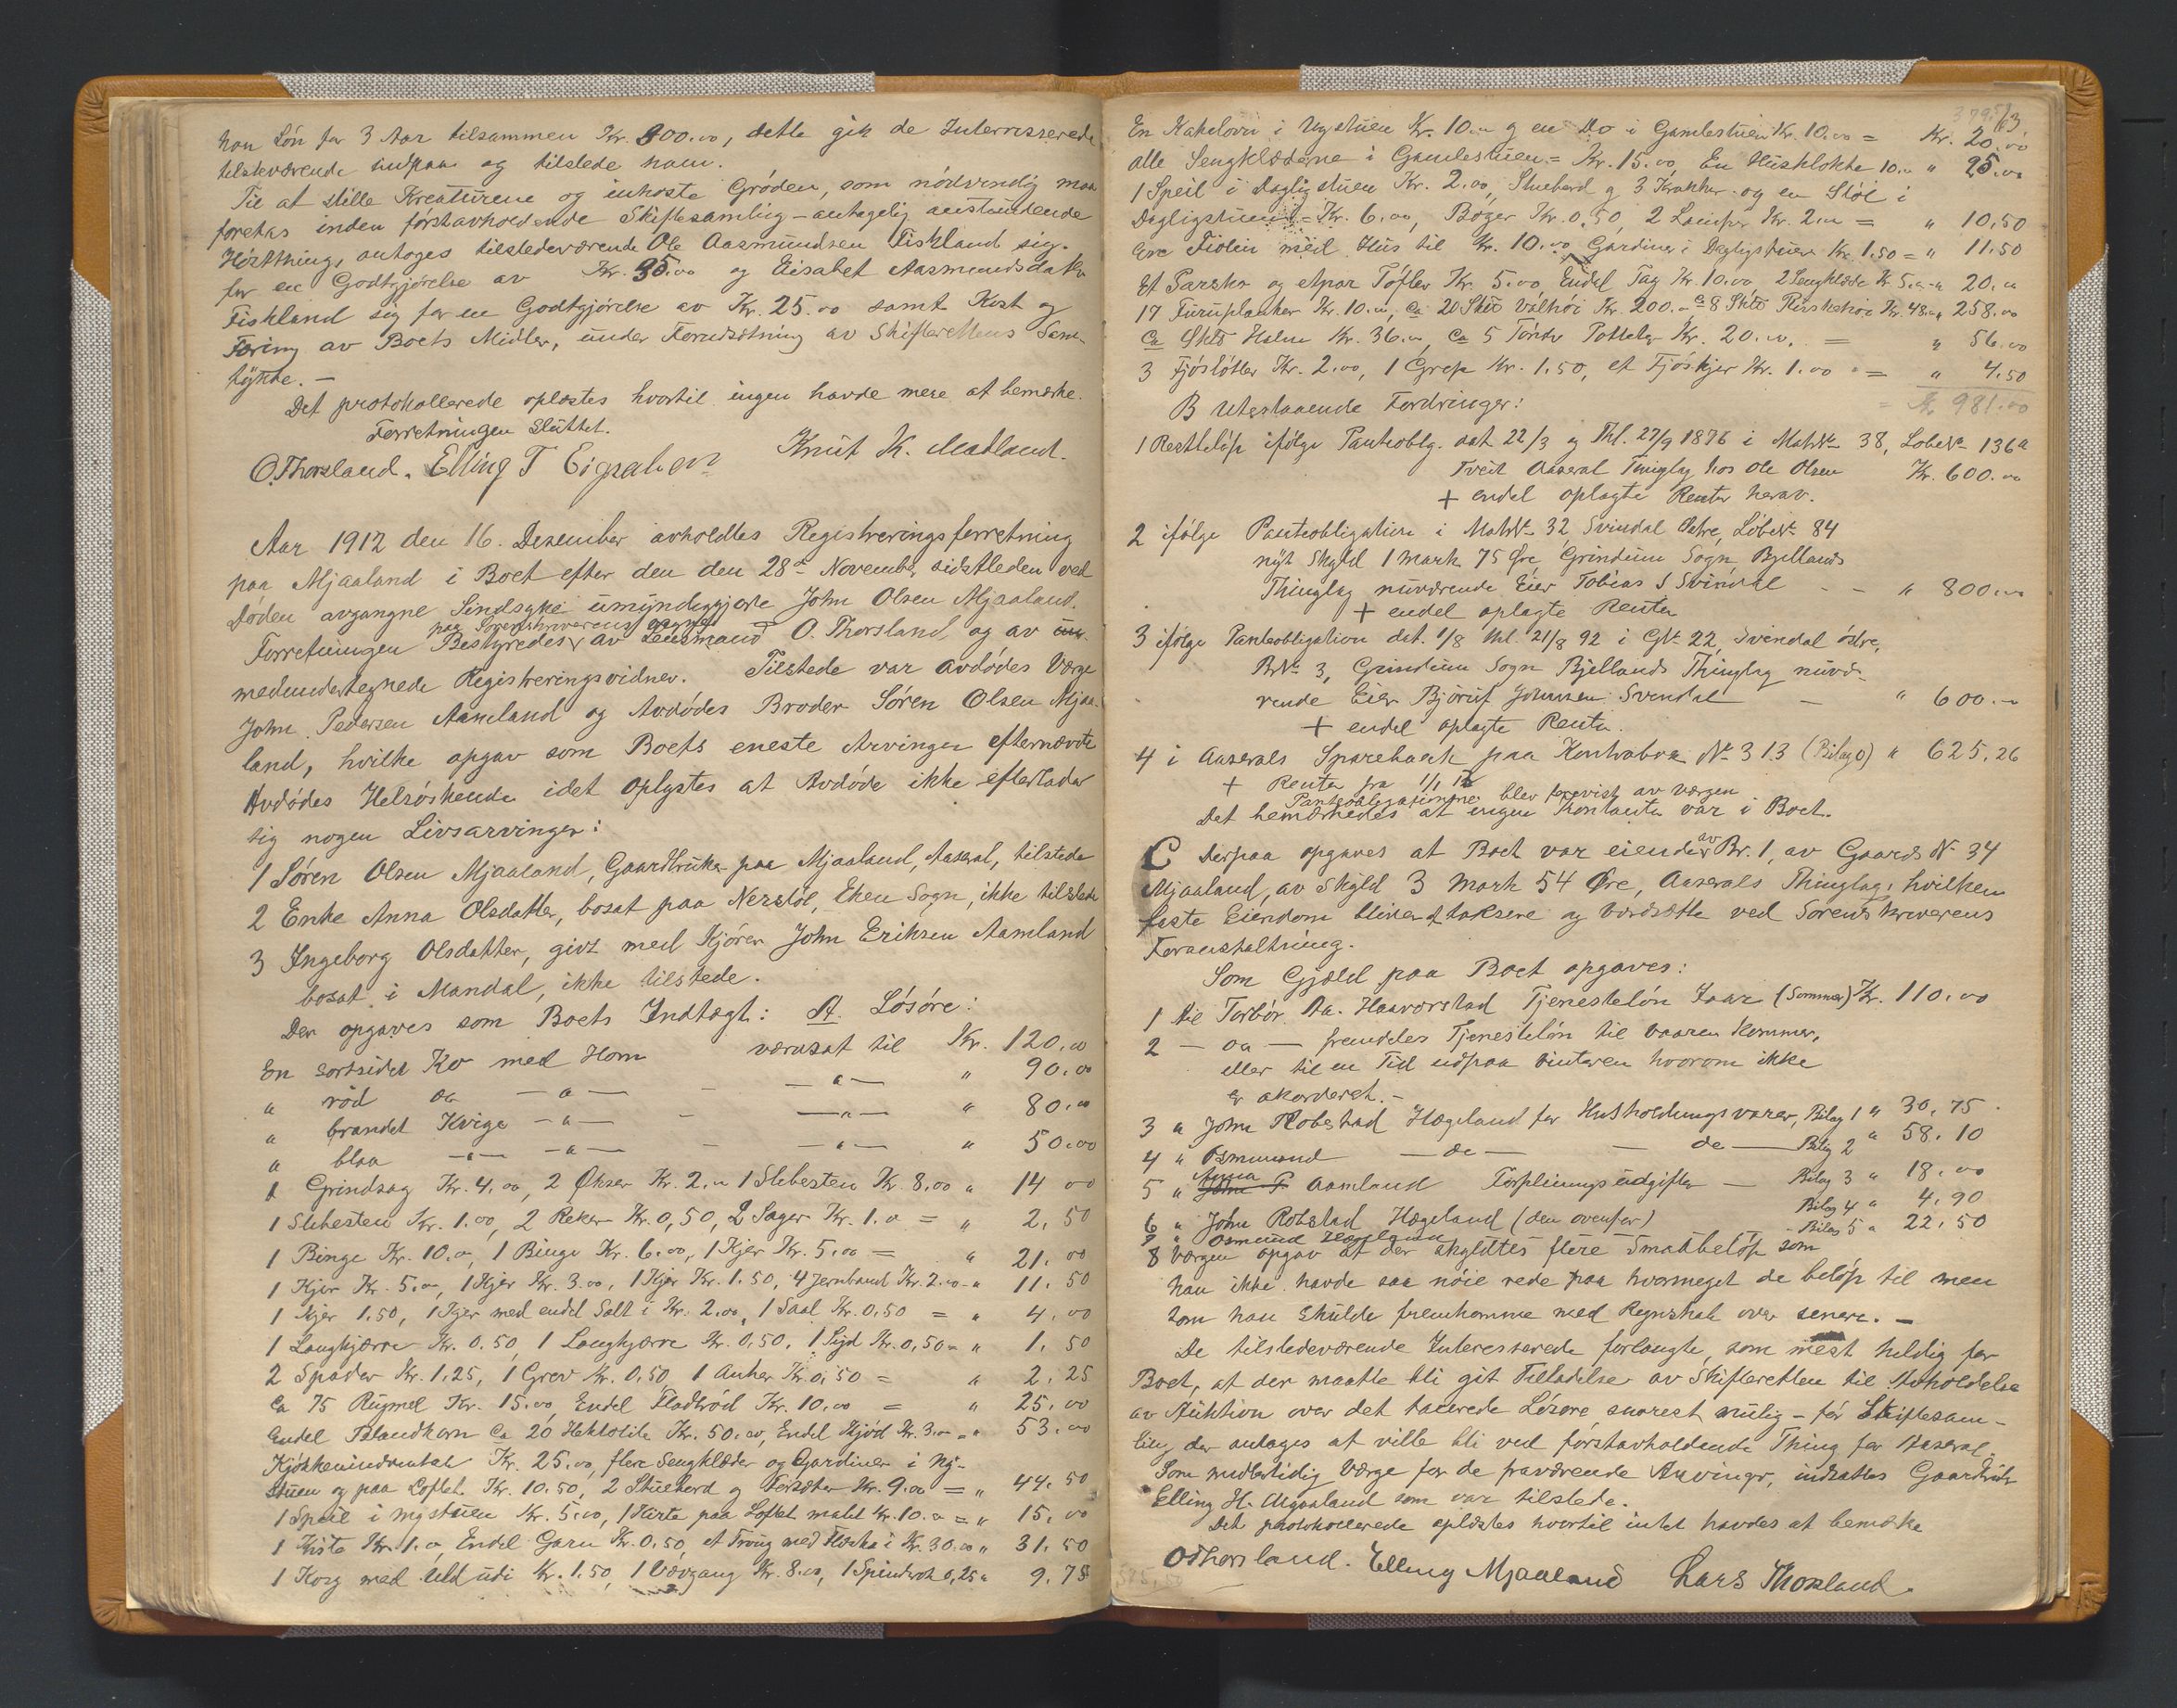 han Løn for 3 Aar tilsammen Kr. 800.00, dette gik de Interresserede
tilstedværende indpaa og tilstede ham.
Til at stille Kreaturene og inhøste Grøden, som nødvendig maa
foretas inden førstavholdende Skiftesamling - antagelig anstundende
Høstthing, antoges tilstedeværende Ole Aasmundsen Fiskland sig
for en Godtgjørelse av Kr. 35.00 og Elisabet Aasmundsdatter
Fiskland sig for en Godtgjørelse av Kr. 25.00 samt Kost og
Føring av Boets Midler, under Forudsætning av Skifterettens Sam-
tykke. -
Det protokollerede oplæstes hvortil ingen havde mere at bemærke.
Forretningen Sluttet.
O. Thorsland. Elling T Knut K. Aadland.
Aar 1912 den 16. Dezember avholdtes Registreringsforretning
paa Mjaaland i Boet efter den den 28de November sidstleden ved
Døden avgangne Sindsyke umyndiggjorte John Olsen Mjaaland.
paa Sorenskriverens vegne
Forretningen Bestyredes av Lensmand O. Thorsland og av
medundertegnede Registreringsvidner. Tilstede var avdødes Værge
John Pedersen Aamland og Avdødes Broder Søren Olsen Mjaa-
land, hvilke opgav som Boets eneste Arvinger efternævnte
Avdødes Helsøskende idet oplystes at Avdøde ikke efterlader
sig nogen Livsarvinger:
1 Søren Olsen Mjaaland, Gaardbruker paa Mjaaland, Aaseral, tilstede
2 Enke Anna Olsdatter, bosat paa Nerstøl, Eken Sogn, ikke tilstede
3 Ingeborg Olsdatter, givt med Kjører John Eriksen Aamland
bosat i Mandal, ikke tilstede.
Der opgaves som Boets Indtægt: A. Løsøre:
En sortsidet Ko med Horn værdsat til Kr. 120.00
" rød do -"- - -"- " 90.00
" brandet Kvige -"- - -"- " 80.00
" blaa -"- -"- - -"- " 50.00
1 Grindsag Kr. 4.00, 2 Økser Kr. 2.00 1 Slibesten Kr. 8.00 " 14 00
1 Slibesten Kr. 1.00, 2 Reker Kr. 0,50, 2 Sager Kr. 1.00 = " 2,50
1 Binge Kr. 10.00, 1 Binge Kr. 6.00, 1 Kjer Kr. 5.00 = " 21.00
1 Kjer Kr. 5.00, 1 Kjer Kr. 3.00, 1 Kjer Kr. 1.50, 4 Jernbaand Kr. 2.00 = " 11.50
1 Kjer 1.50, 1 Kjer med endel Salt i Kr. 2.00, 1 Saal Kr. 0.50 = " 4.00
1 Langkjærre Kr. 0.50, 1 Langkjærre Kr. 0,50, 1 Sigd Kr. 0,50 = " 1.50
2 Spader Kr. 1.25, 1 Grev Kr. 0.50 1 Anker Kr. 0,50 = " 2.25
Ca 75 Rugmel Kr. 15.00, Endel Fladbrød Kr. 10.00 = " 25.00
Endel Blandkorn ca 20 Hektoliter Kr. 50.00, Endel Kjød Kr. 3.00 = " 53.00
Kjøkkeninventar Kr. 25.00, flere Sengklæder og Gardiner i Ny-
stuen og paa Loftet Kr. 10.50, 2 Stuebord og Kr. 9.00 = " 44.50
1 Speil i nystuen Kr. 5.00, 1 Kiste paa Loftet malet Kr. 10.00 = " 15.00
1 Kiste Kr. 1.00, Endel Garn Kr. 0.50, et Traug med Flæske i Kr. 30.00 " 31.50
1 Korg med Uld udi Kr. 1.50, 1 Vævgang Kr. 8.00, 1 Spindrok 0,25 " 9.75
63.
En Kakelovn i Nystuen Kr. 10.00 og en Do i Gamlestuen Kr. 10.00 = Kr. 20.00
Alle Sengklæderne i Gamlestuen = Kr. 15.00, En Husklokke 10.00 " 25.00
1 Speil i Dagligstuen Kr. 2.00, Stuebord og 3 Krakker og en Stol i
Dagligstuen = Kr. 6.00, Bøger Kr. 0.50, 2 Lamper Kr. 2.00 = " 10,50
Een Fiolin med Hus til Kr. 10.00, Gardiner i Dagligstuen Kr. 1.50 = " 11.50
Et Parsko og etpar Tøfler Kr. 5.00, Endel Tøy Kr. 10.00, 2 Sengklæde Kr. 5.00 " 20.00
17 Furuplanker Kr. 10.00, Ca 20 Skpd Valhøi Kr. 200.00, ca 8 Skpd Kr. 48.00 " 258.00
Ca Skpd Halm Kr. 36.00, Ca 5 Tønder Potteter Kr. 20.00. = " 56.00
3 Fjøsløtter Kr. 2.00, 1 Grep Kr. 1.50, et Fjøskjer Kr. 1.00 = " 4.50
= Kr 981.00
B Utestaaende Fordringer:
1 Restbeløp ifølge Panteoblg. dat 22/3 og Thl. 27/9 1876 i MatrNo 38, LøbeNo 136a
Tveit Aaseral Thinglag hos Ole Olsen Kr. 600.00
+ endel oplagte Renter herav.
2 ifølge Panteobligation i MatrNo 32, Svindal Østre, LøbeNo 84
nyt Skyld 1 mark 75 Øre, Grindum Sogn, Bjellands
Thinglag nuværende Eier Tobias S Svindal - - " 800.00
+ endel oplagte Renter
3 ifølge Panteobligation dat. 1/8 thl. 21/8 92 i GNo 22, Svendal østre,
BrNo 3, Grindum Sogn Bjellands Thinglag nuvæ-
rende Eier Bjørulf Johnsen Svendal - " 600.00
+ endel oplagte Renter.
4 i Aaserals Sparebank paa Kontrabok No 313 (Bilag 0) " 625,26
+ Renter fra 1/1 12
Panteobligationene blev forevist av værgen
Det bemærkedes at ingen Kontanter var i Boet.
C Derpaa opgaves at Boet var eiendes av Br. 1, av Gaards No 34
Mjaaland, av Skyld 3 Mark 54 Øre, Aaserals Thinglag, hvilken
faste Eiendom bliver at taksere og værdsætte ved Sorenskriverens
Foranstaltning.
Som Gjæld paa Boet opgaves:
1 til Torbør Da. Haaverstad Tjenesteløn Iaar (Sommer) Kr. 110.00
2 - do - fremdeles Tjenesteløn til vaaren kommer,
eller til en Tid udpaa vinteren hvorom ikke
er akorderet. -
3 " John Robstad Hægeland for Husholdningsvarer, Bilag 1 " 30.75
4 " Osmund - do - - do - Bilag 2 " 58.10
5 " Anna Aamland Forpleiningsudgifter - Bilag 3 " 18.00
6 " John Robstad Hægeland (den ovenfor) Bilag 4 " 4.90
7 " Osmund Hægeland - Bilag 5 " 22.50
8 Værgen opgav at der skyldtes flere Smaabeløp som
han ikke havde saa nøie rede paa hvormeget de beløp til men
som han skulde fremkomme med Regnskab over senere. -
De tilstedeværende Interesserede forlangte, som mest heldig for
Boet, at der maatte bli git Tilladelse av Skifteretten til Avholdelse
av Auktion over det taxerede Løsøre snarest mulig - før Skiftesam-
ling der antages at ville bli ved førstavholdende Thing for Aaseral.
Som midlertidig Værge for de fraværende Arvinger, indsattes Gaardbruker
Elling H. Mjaaland som var tilstede.
Det protokollerede oplæstes hvortil intet havdes at bemærke
O Thorsland. Elling Mjaaland Lars Thorsland.